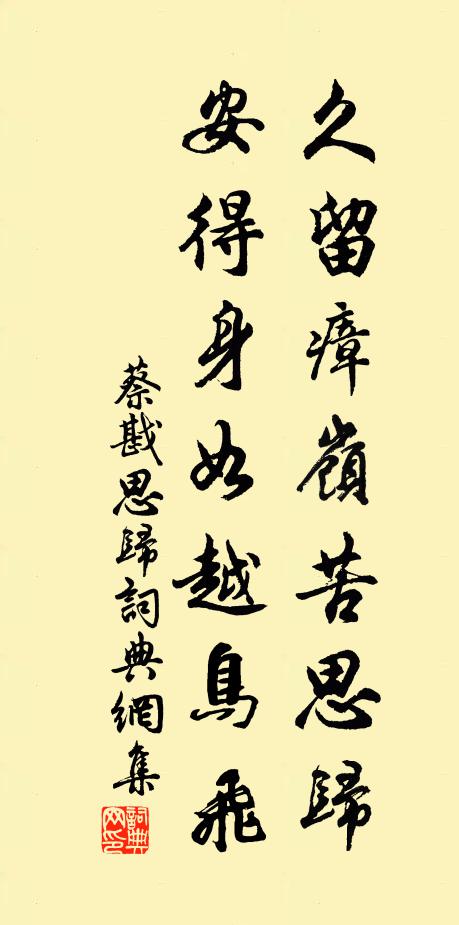 久留瘴嶺苦思歸
安得身如越鳥飛
蔡戡思歸詞典網集
詞典网印